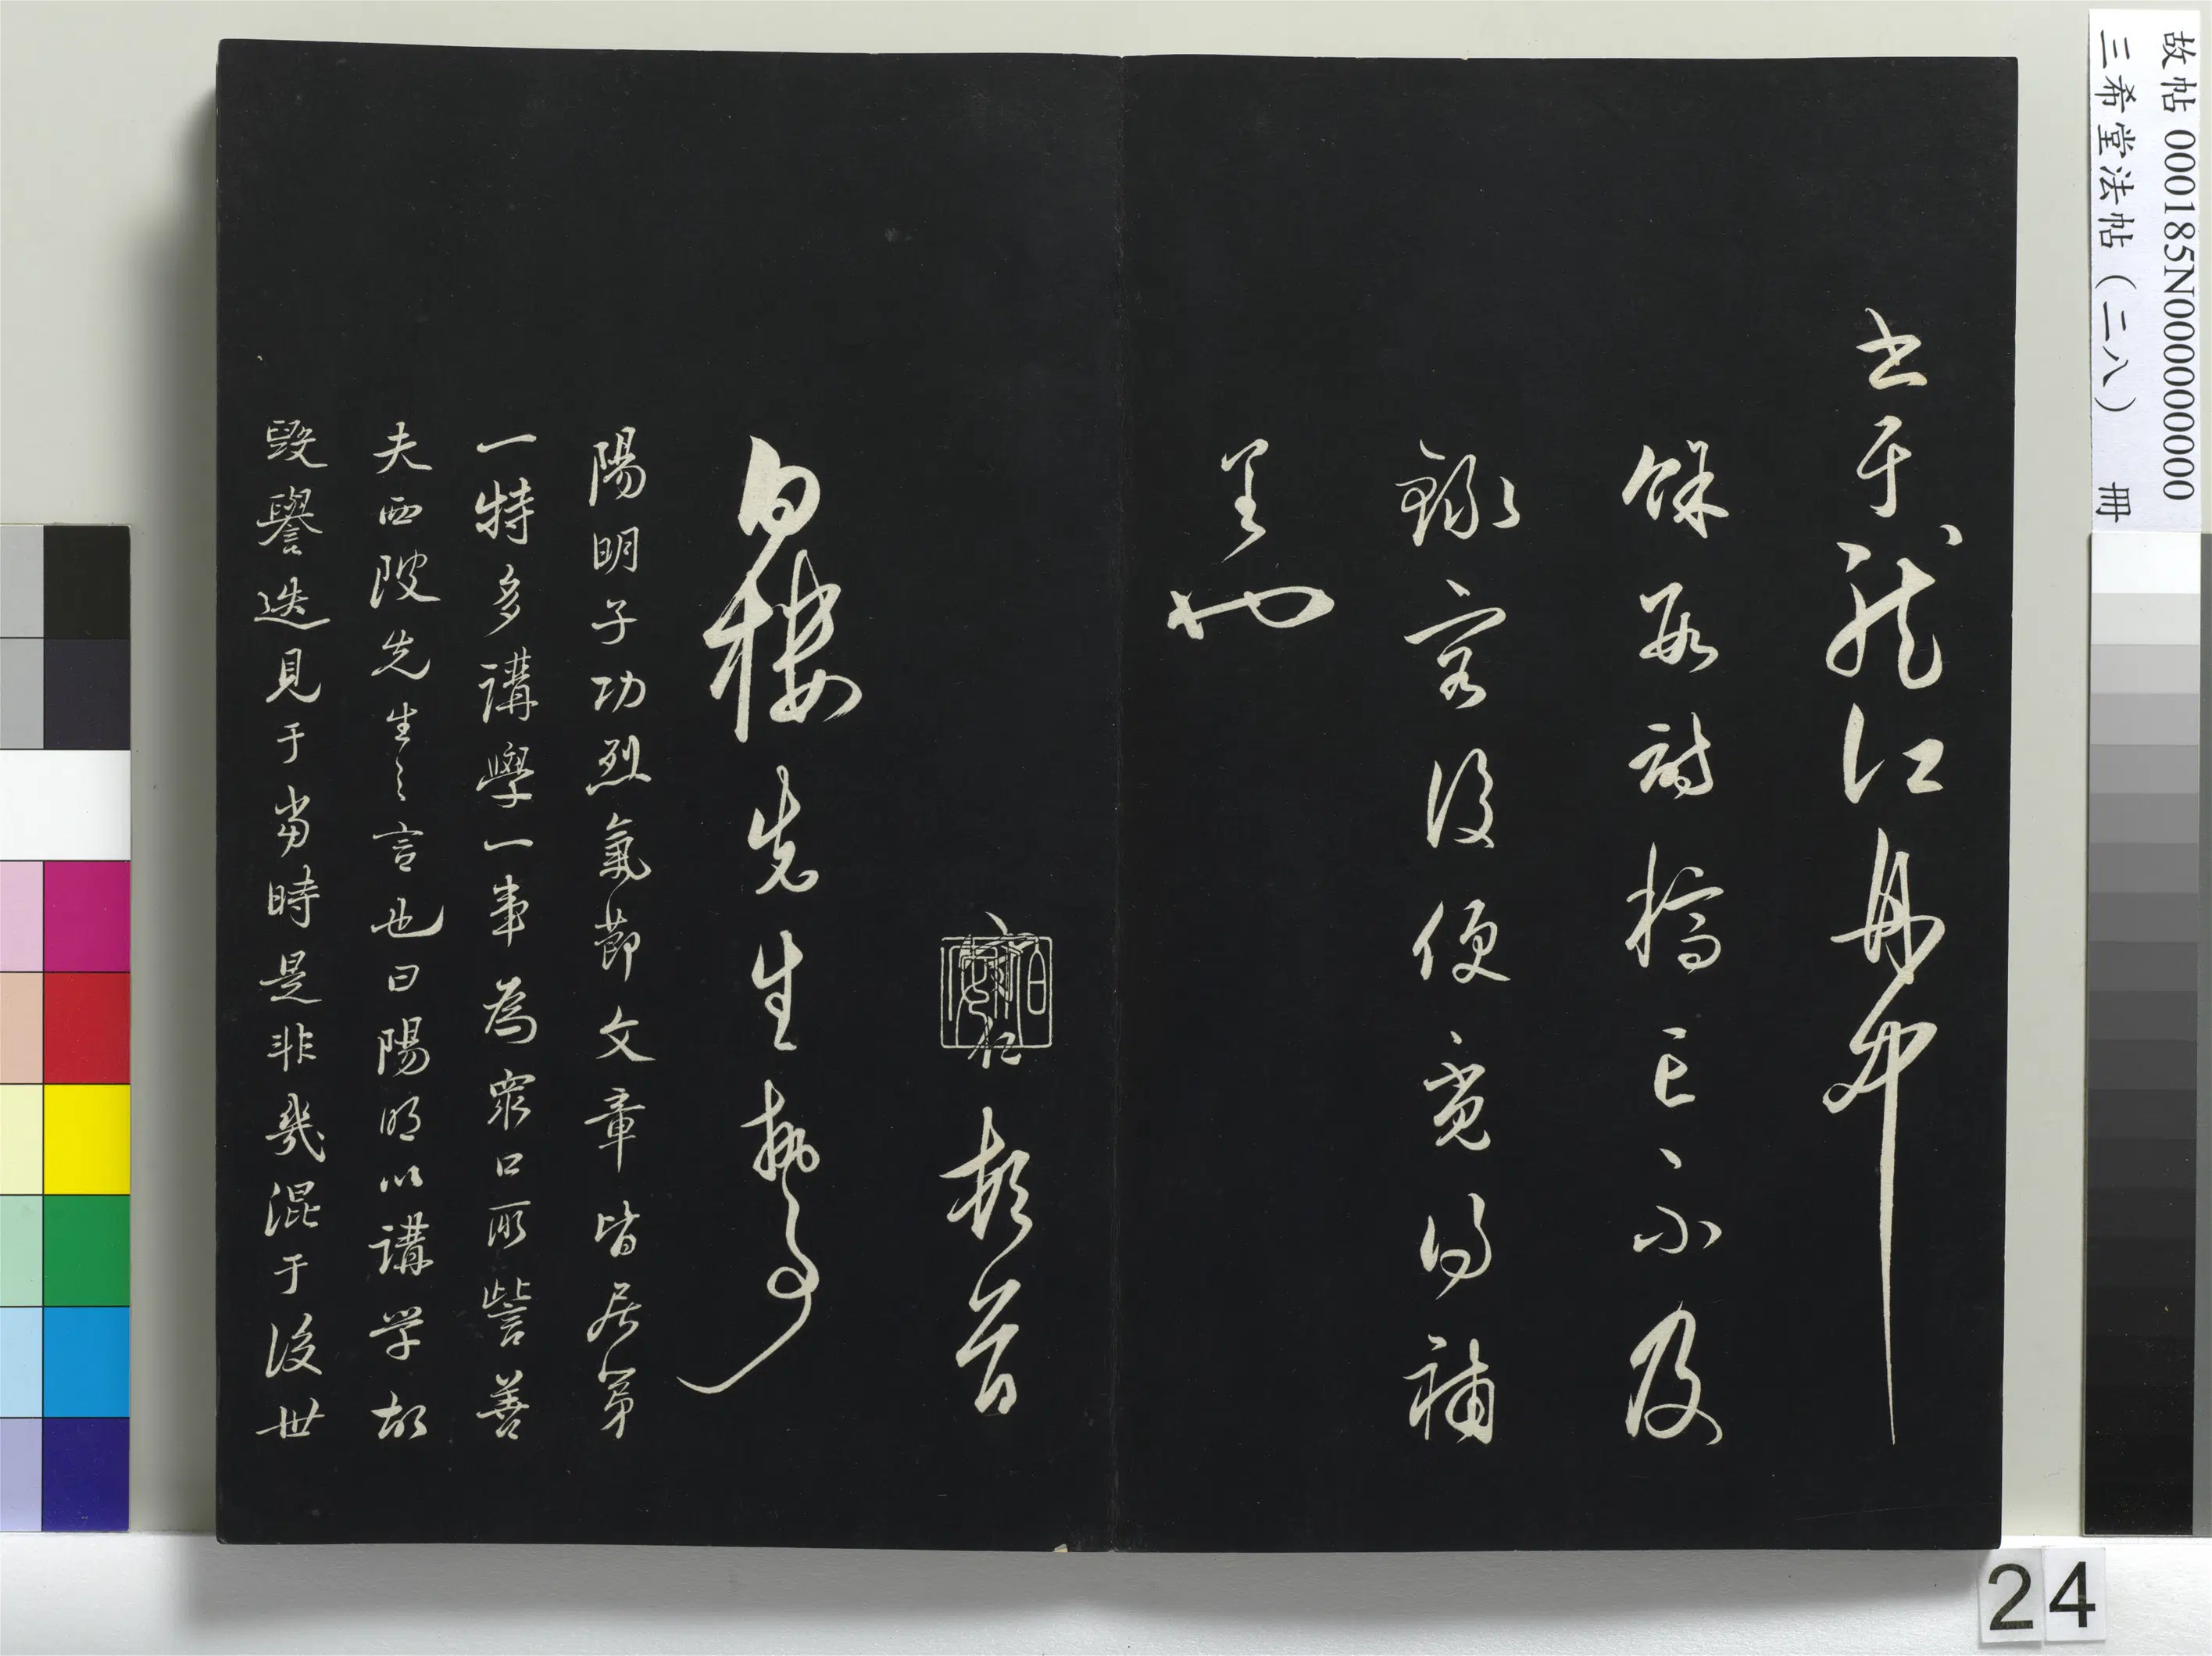 故帖 000185N000000000
三希堂法帖（二八） 冊
書于龍江舟中
餘數詩稿亡不及
錄容後便覓得補
呈也
守仁頓首
伯安
白樓先生執事
陽明子功烈氣節文章皆居第
一特多講學一事為眾口所訾善
夫西陂先生之言也曰陽明以講学故
毀譽迭見于當時是非幾混于後世
24